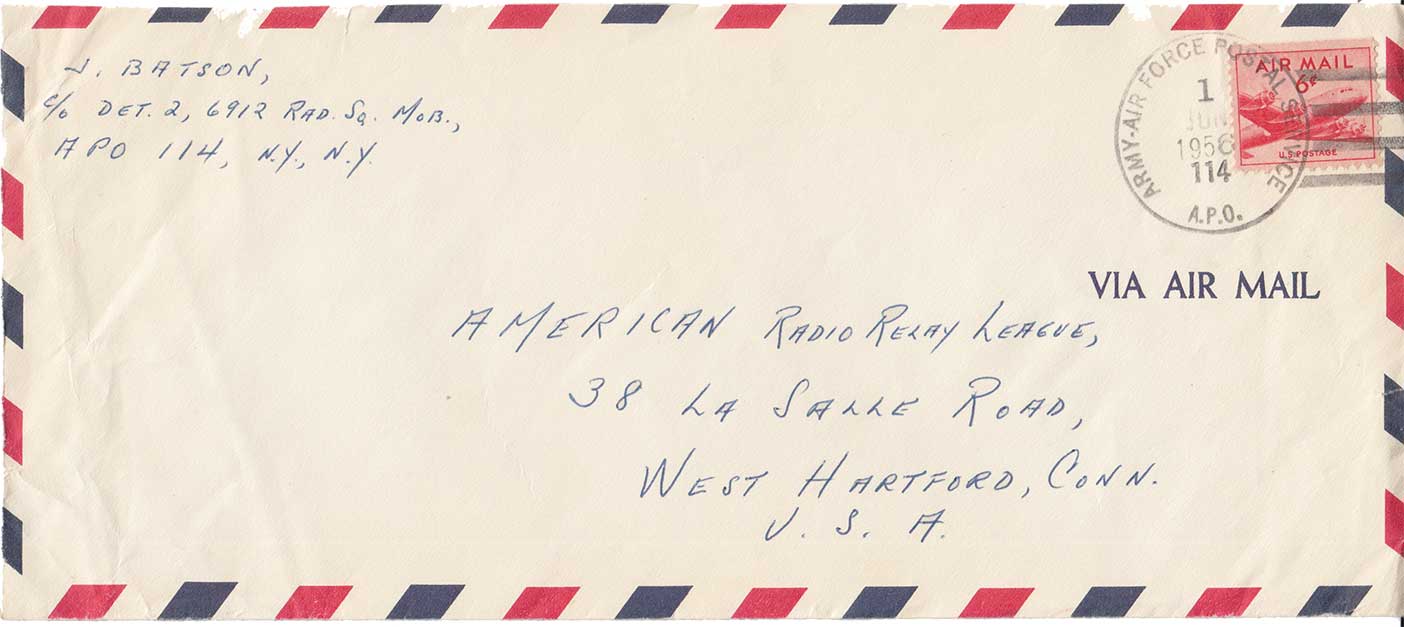 J. BATSON,
c/o DET. 2, 6912 RAD. Sq. MOB.,
APO 114, N.Y., N.Y.
ARMY-AIR FORCE POSTAL SERVICE
1
JUN
1956
114
A.P.O.
AIR MAIL
6¢
U.S. POSTAGE
VIA AIR MAIL
AMERICAN RADIO RELAY LEAGUE,
38 LA SALLE ROAD,
WEST HARTFORD, CONN.
U. S. A.